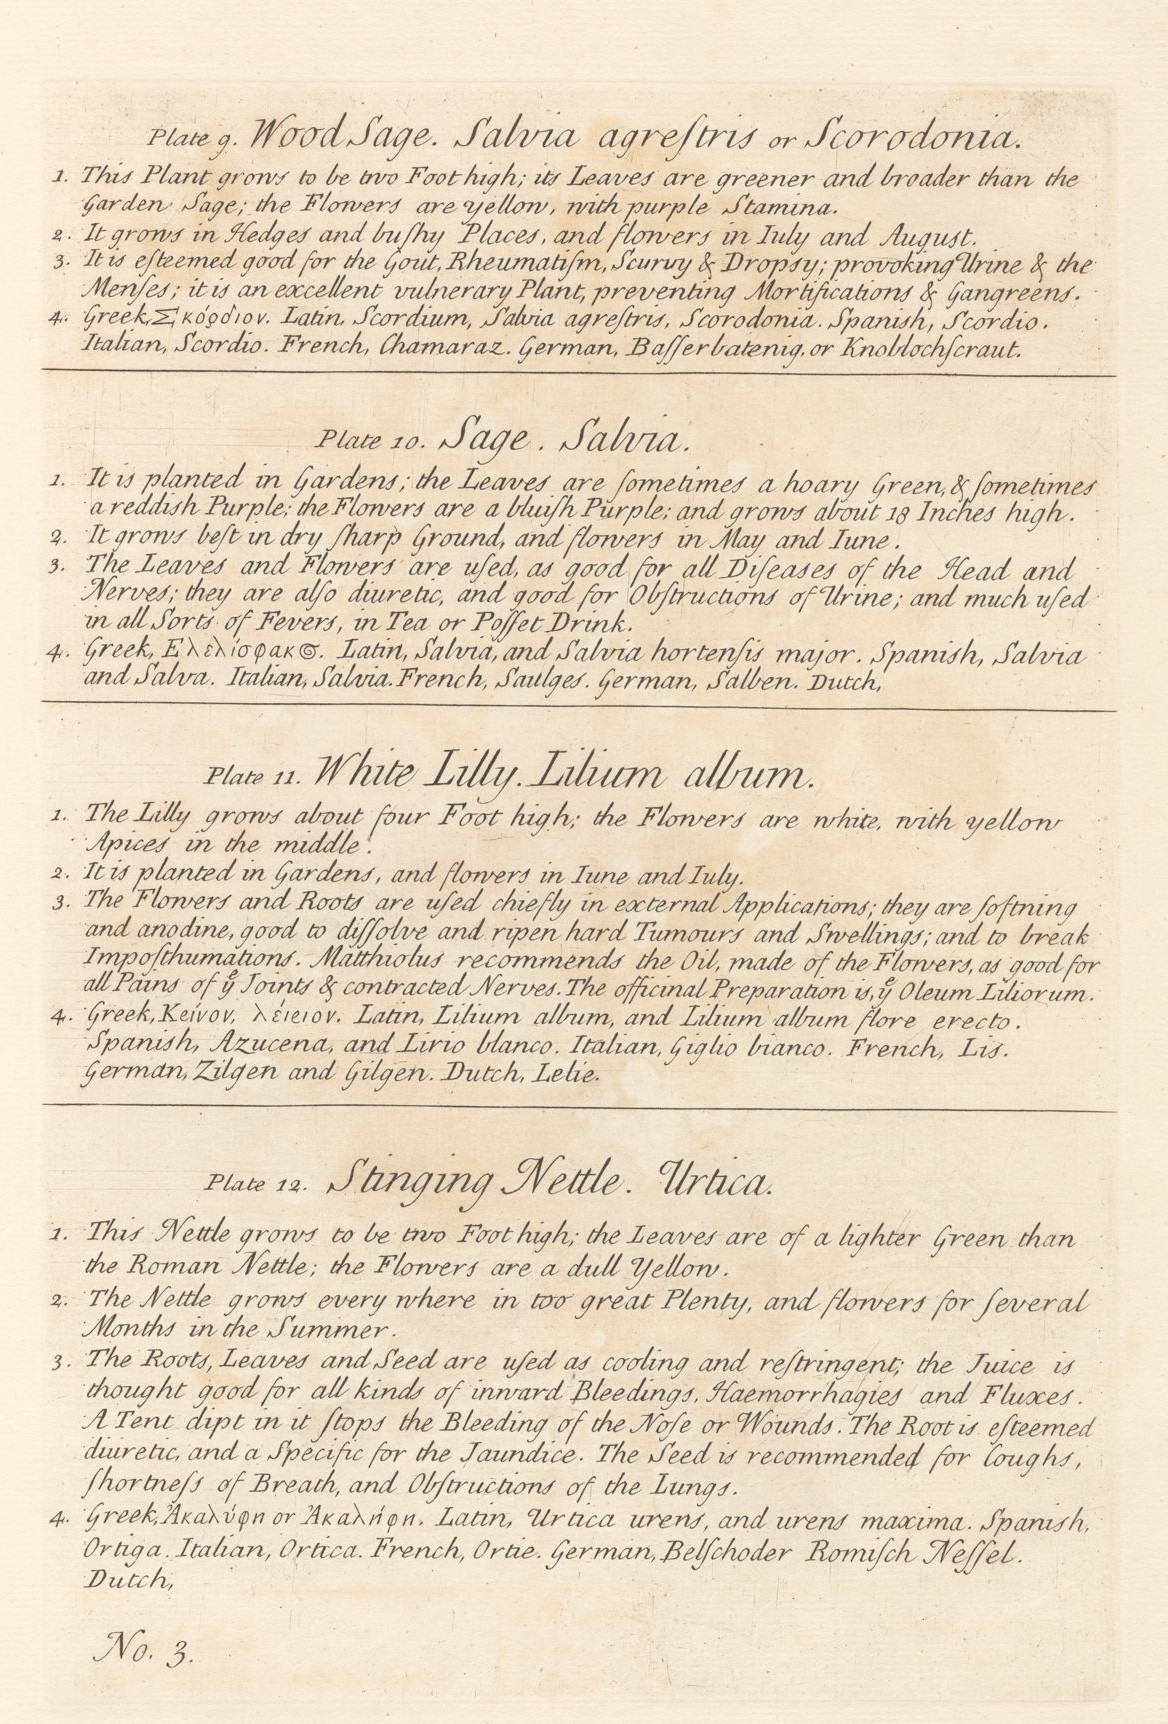 Plate 9. Wood Sage. Salvia agreſtris or Scorodonia.
1. This Plant grows to be two Foot high; its Leaves are greener and broader than the
Garden Sage; the Flowers are yellow, with purple Stamina.
2. It grows in Hedges and buſhy Places, and flowers in Iuly and August.
3. It is eſteemed good for the Gout, Rheumatiſm, Scurvy & Dropsy; provoking Urine & the
Menſes; it is an excellent vulnerary Plant, preventing Mortifications & Gangreens.
4. Greek, Σκόρδιον. Latin, Scordium, Salvia agreſtris, Scorodonia. Spanish, Scordio.
Italian, Scordio. French, Chamaraz. German, Baſſerbatenig, or Knoblochſcraut.
Plate 10. Sage. Salvia.
1. It is planted in Gardens; the Leaves are ſometimes a hoary Green, & ſometimes
a reddish Purple; the Flowers are a bluiſh Purple; and grows about 18 Inches high.
2. It grows beſt in dry ſharp Ground, and flowers in May and Iune.
3. The Leaves and Flowers are uſed, as good for all Diſeases of the Head and
Nerves; they are alſo diuretic, and good for Obſtructions of Urine; and much uſed
in all Sorts of Fevers, in Tea or Poſſet Drink.
4. Greek, Ελελίσφακος. Latin, Salvia, and Salvia hortenſis major. Spanish, Salvia
and Salva. Italian, Salvia. French, Saulges. German, Salben. Dutch,
Plate 11. White Lilly. Lilium album.
1. The Lilly grows about four Foot high; the Flowers are white, with yellow
Apices in the middle.
2. It is planted in Gardens, and flowers in Iune and Iuly.
3. The Flowers and Roots are uſed chiefly in external Applications; they are ſoftning
and anodine, good to diſſolve and ripen hard Tumours and Swellings; and to break
Impoſthumations. Matthiolus recommends the Oil, made of the Flowers, as good for
all Pains of yͤ Joints & contracted Nerves. The officinal Preparation is, yͤ Oleum Liliorum.
4. Greek, Κείνον, λείειον. Latin, Lilium album, and Lilium album flore erecto.
Spanish, Azucena, and Lirio blanco. Italian, Giglio bianco. French, Lis.
German, Zilgen and Gilgen. Dutch, Lelie.
Plate 12. Stinging Nettle. Urtica.
1. This Nettle grows to be two Foot high; the Leaves are of a lighter Green than
the Roman Nettle; the Flowers are a dull Yellow.
2. The Nettle grows every where in too great Plenty, and flowers for ſeveral
Months in the Summer.
3. The Roots, Leaves and Seed are uſed as cooling and reſtringent; the Juice is
thought good for all kinds of inward Bleedings, Haemorrhagies and Fluxes.
A Tent dipt in it ſtops the Bleeding of the Noſe or Wounds. The Root is eſteemed
diuretic, and a Specific for the Jaundice. The Seed is recommended for Coughs,
ſhortneſs of Breath, and Obſtructions of the Lungs.
4. Greek, Ἀκαλύφη or Ἀκαλήφη. Latin, Urtica urens, and urens maxima. Spanish,
Ortiga. Italian, Ortica. French, Ortie. German, Belſchoder Romiſch Neſſel.
Dutch,
No. 3.